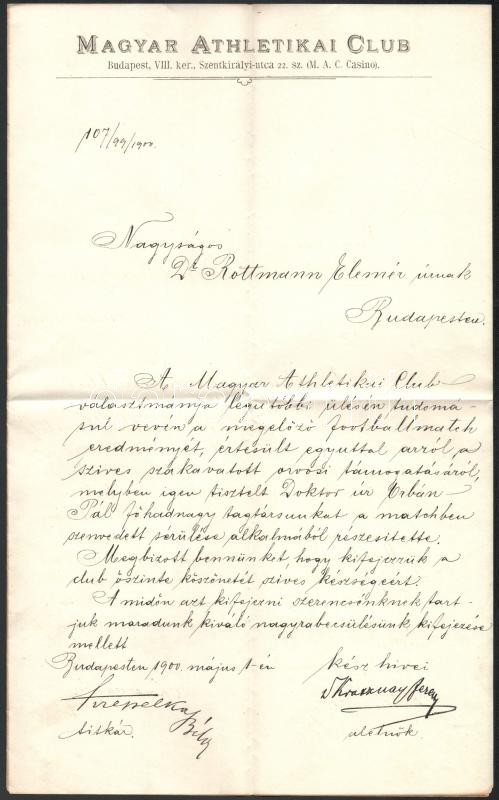 MAGYAR ATHLETIKAI CLUB
Budapest, VIII. ker., Szentkirályi-utca 22. sz. (M. A. C. Casino).
107/99/1900.
Nagyságos
Dr Rottmann Elemér úrnak
Budapesten.
A Magyar Athletikai Club
választmánya legutóbbi ülésén tudomá-
sul vevén a megelőző footballmatch
eredményét, értesült egyuttal arról a
szives szakavatott orvosi támogatásáról,
melyben igen tisztelt Doktor úr Orbán
Pál főhadnagy tagtársunkat a matchben
szenvedett sérülése alkalmából részesitette.
Megbizott bennünket, hogy kifejezzük a
club őszinte köszönetét szives készségeért.
Amidőn azt kifejezni szerencsénknek tart-
juk maradunk kiváló nagyrabecsülésünk kifejezése
mellett
Budapesten 1900. május 1-én
kész hivei
Béla
Ferenc
titkár.
alelnök.